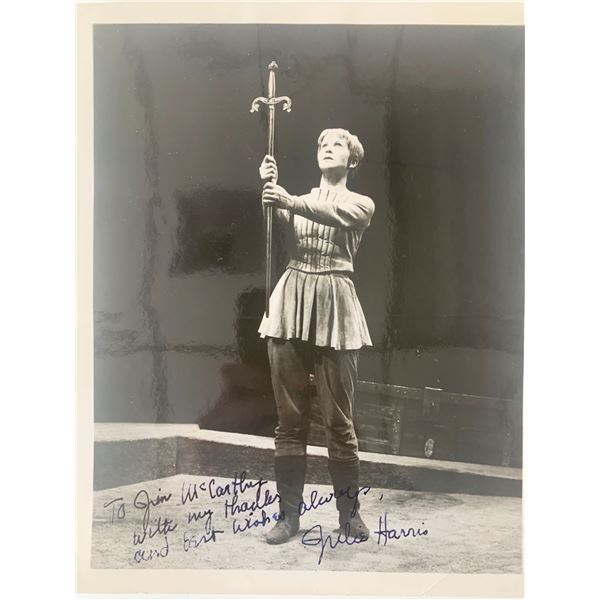 To Jim McCarthy
with my thanks
and best wishes always,
Julie Harris